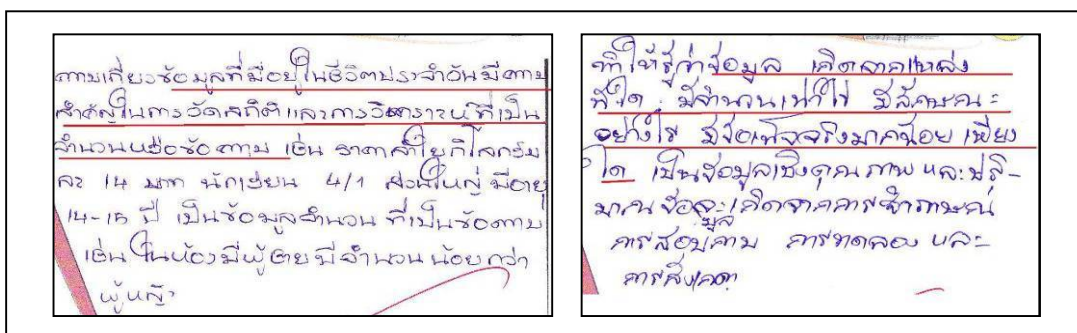 ถามเกี่ยวข้อมูลที่มีอยู่ในชีวิตประจำวันมีความ
สำคัญในการวัดสถิติและการวิเคราะห์ที่เป็น
จำนวนหรือข้อความ เช่น ราคาลำไยกิโลกรัม
ละ 14 บาท นักเรียน 4/1 ส่วนใหญ่มีอายุ
14-15 ปี เป็นข้อมูลจำนวน ที่เป็นข้อความ
เช่น ในห้องมีผู้ชายมีจำนวนน้อยกว่า
ผู้หญิง
ทำให้รู้ว่าข้อมูล เกิดจากแหล่ง
ที่ใด มีจำนวนเท่าไร มีลักษณะ
อย่างไร มีข้อเท็จจริงมากน้อย เพียง
ใด เป็นข้อมูลเชิงคุณภาพ และปริ-
มาณ ข้อมูลเกิดจากการสัมภาษณ์
การสอบถาม การทดลอง และ
การสังเกต